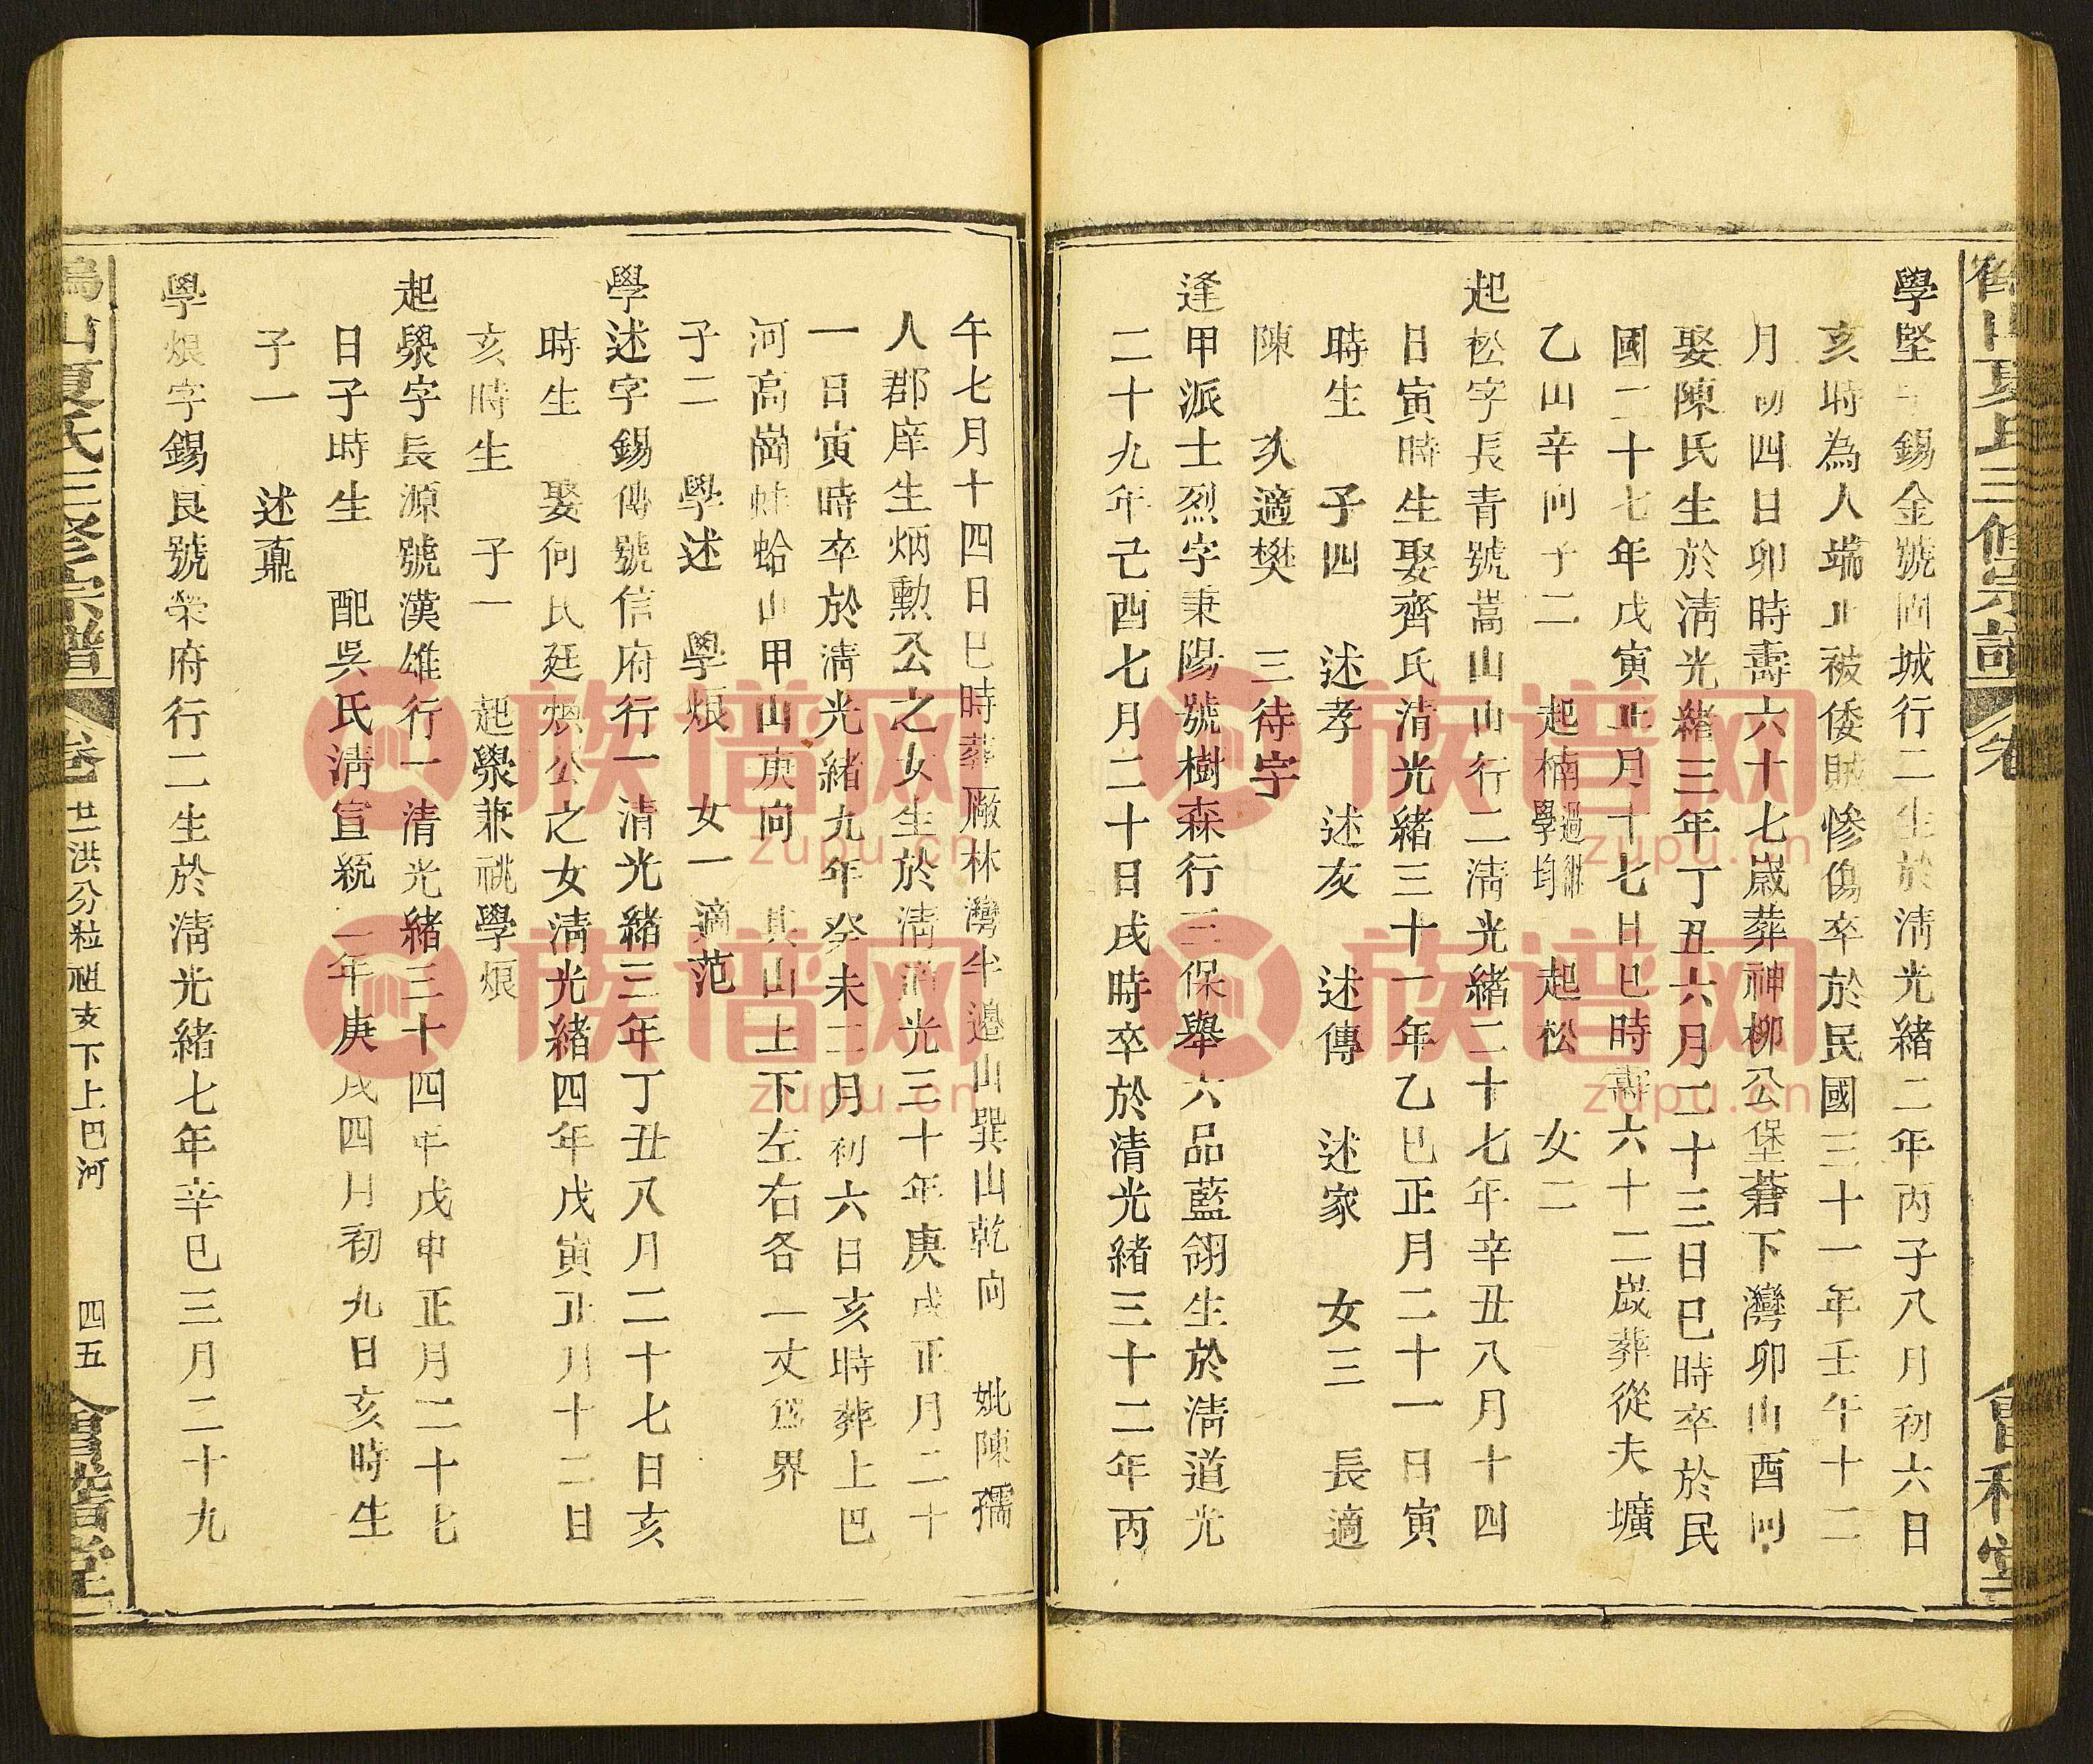 學堅字錫金號固城行二生於淸光緒二年丙子八月初六日
亥時為人端正被倭賊慘傷卒於民國三十一年壬午十二
月初四日卯時壽六十七歲葬神柳公堡蒼下灣卯山酉向
娶陳氏生於淸光緒三年丁丑六月二十三日巳時卒於民
國二十七年戊寅正月十七日巳時壽六十二歲葬從夫壙
乙山辛向子二 起楠過繼學均 起松 女二
起松字長青號嵩山行二淸光緒二十七年辛丑八月十四
日寅時生娶齊氏清光緒三十一年乙巳正月二十一日寅
時生 子四 述孝 述友 述傳 述家 女三 長適
陳 次適樊 三待字
逢甲派士烈字秉陽號樹森行三保舉六品藍翎生於淸道光
二十九年己酉七月二十日戌時卒於清光緒三十二年丙
午七月十四日巳時葬廠林灣半邊山巽山乾向 妣陳孺
人郡庠生炳勳公之女生於淸道光三十年庚戌正月二十
一日寅時卒於淸光緒九年癸未二月初六日亥時葬上巴
河高崗蚌蛤山甲山庚向 其山上下左右各一丈爲界
子二 學述 學烺 女一適范
學述字錫傳號信府行一清光緒三年丁丑八月二十七日亥
時生 娶何氏廷煥公之女淸光緒四年戊寅正月十二日
亥時生 子一 起㵘兼祧學烺
起㵘字長源號漢雄行一清光緒三十四年戊申正月二十七
日子時生 配吳氏淸宣統二年庚戌四月初九日亥時生
子一 述鼐
學烺字錫良號榮府行二生於淸光緒七年辛巳三月二十九
山夏氏三修宗譜 卷 廿一洪分粒祖支下上巴河 四五